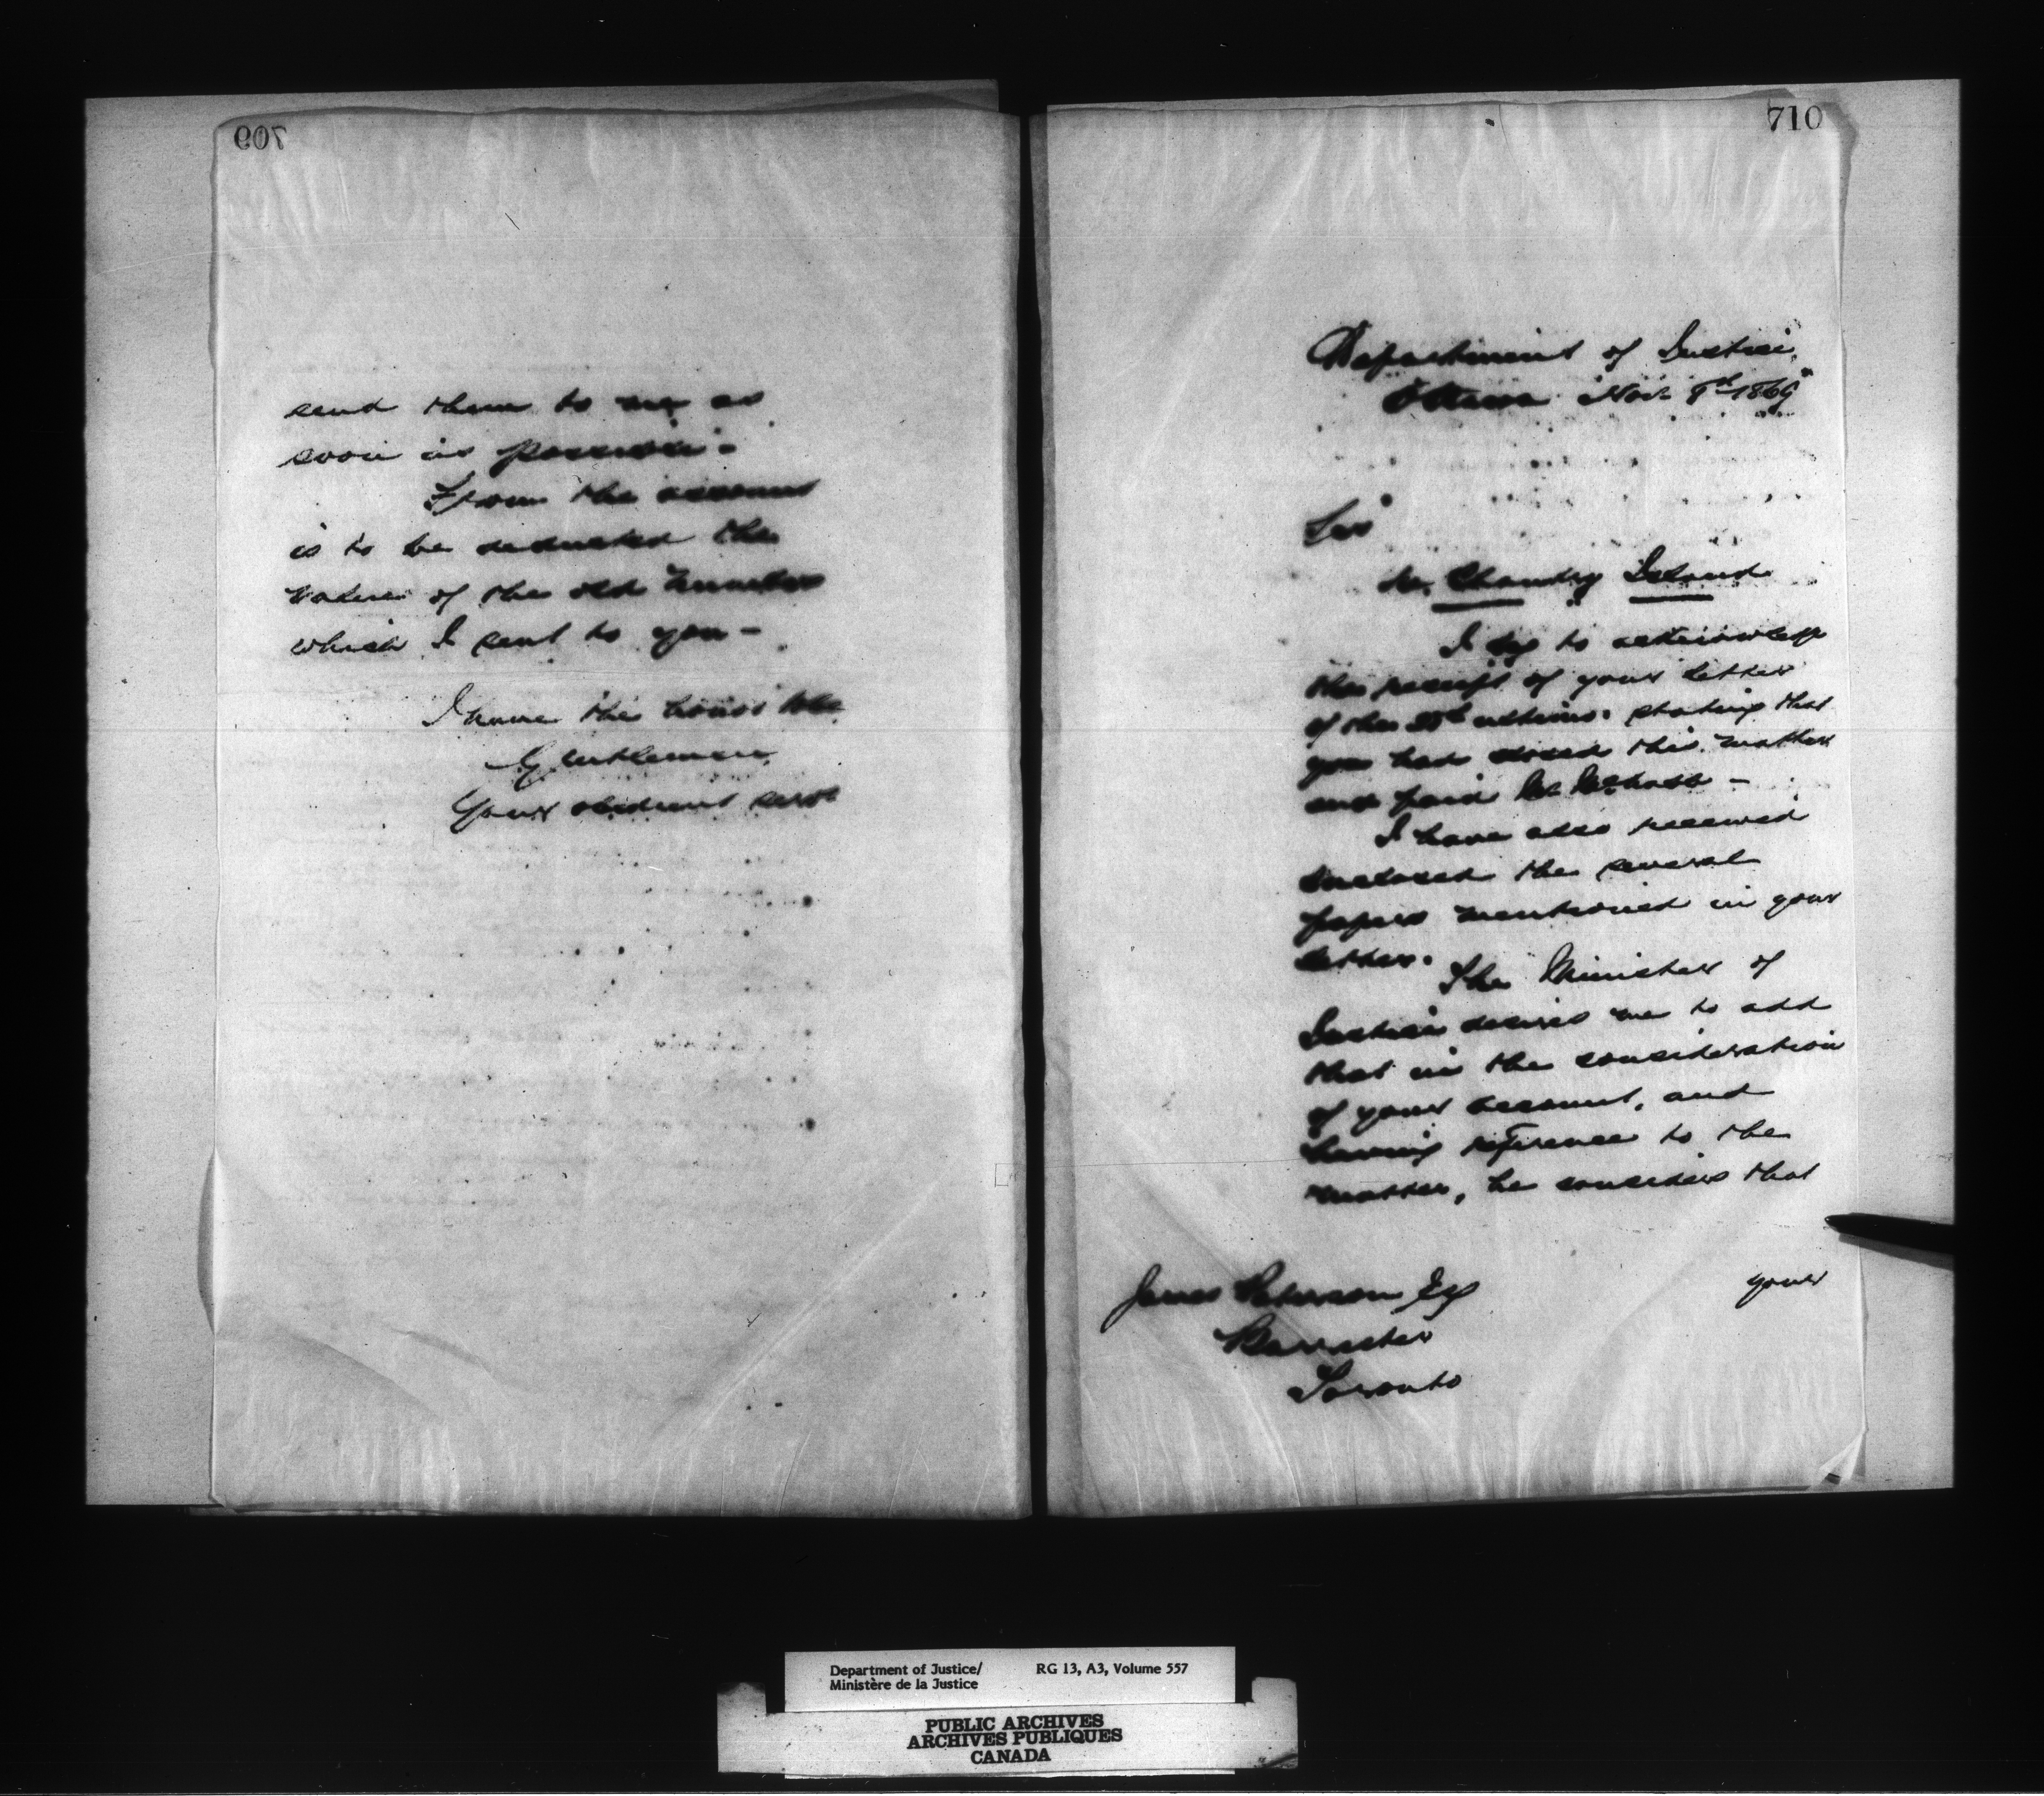 709
send them to me as
soon as possible -
From the account
is to be deducted the
value of the old
which I sent to you -
I have the honor to be
Gentlemen
Your obedient servt
710
Department of Justice,
Ottawa Nov 9th 1869
Sir
re. Chantry Island
I beg to acknowledge
the receipt of your letter
of the ultimo. stating that
you had closed this matter
and paid
I have also received
enclosed the several
papers mentioned in your
letter.
The Minister of
Justice desires me to add
that in the consideration
of your account, and
having reference to the
matter, he considers that
your
James Paterson Esq
Barrister
Toronto
Department of Justice/ RG 13, A3, Volume 557
Ministère de la Justice
PUBLIC ARCHIVES
ARCHIVES PUBLIQUES
CANADA